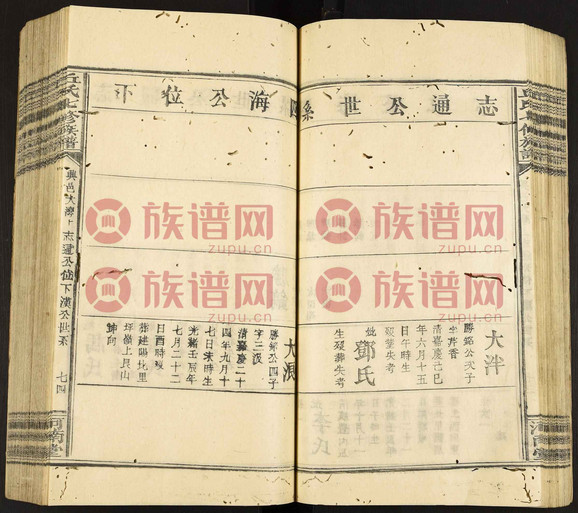 志通公世系
大泮
勝鄒公六子
字芹香
清嘉慶己巳
年六月十五
日午時生
歿葬失考
妣鄧氏
生歿葬失考
海公位下
大浪
勝鄒公四子
字三汲
清嘉慶二十
四年九月十
七日未時生
光緒壬辰年
七月二十二
日酉時歿
葬建陽北里
坪嶺上艮山
坤向
丘氏七修族譜
興邑大灣上志通公位下漢公世系
七四
河南堂
族谱网
zupu.cn
族谱网
zupu.cn
族谱网
zupu.cn
族谱网
zupu.cn